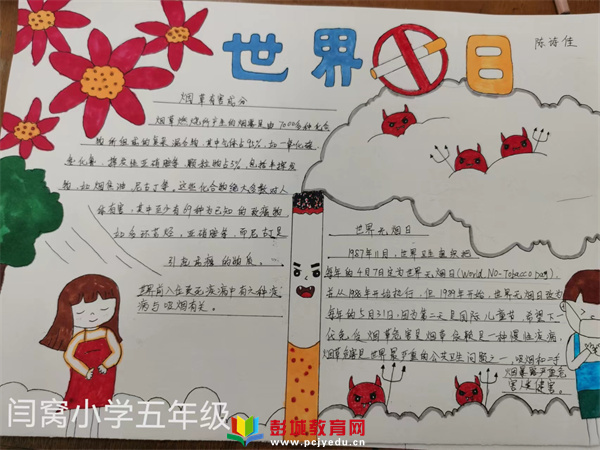 世界日
陈诗佳
烟草有害成分
烟草燃烧所产生的烟雾是由7000多种化合
物所组成的复杂混合物,其中气体占95%,如一氧化碳、
氢化氰、挥发性亚硝胺等,颗粒物占5%,包括半挥发
物,如烟焦油、尼古丁等,这些化合物绝大多数对人
体有害,其中至少有69种为已知的致癌物,
如多环芳烃,亚硝胺等,而尼古丁是
引起成瘾的物质。
世界前八位致死疾病中有六种疾
病与吸烟有关。
世界无烟日
1987年11月,世界卫生组织把
每年的4月7日定为世界无烟日(World No-Tobacco Day),
并从1988年开始执行,但1989年开始,世界无烟日改为
每年的5月31日,因为第二天是国际儿童节,希望下一
代免受烟草危害。是烟草依赖是一种慢性疾病,
烟草危害是世界最严重的公共卫生问题之一,吸烟和二手
烟暴露严重危
害人类健康。
闫窝小学五年级
彭林教育网
www.pcjyedu.cn